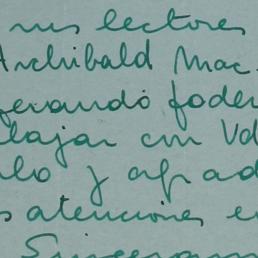 mis lectores
Archibald Mac
erando poder
lajar con Vd
lo y agrad
s atenciones e
Sinceram